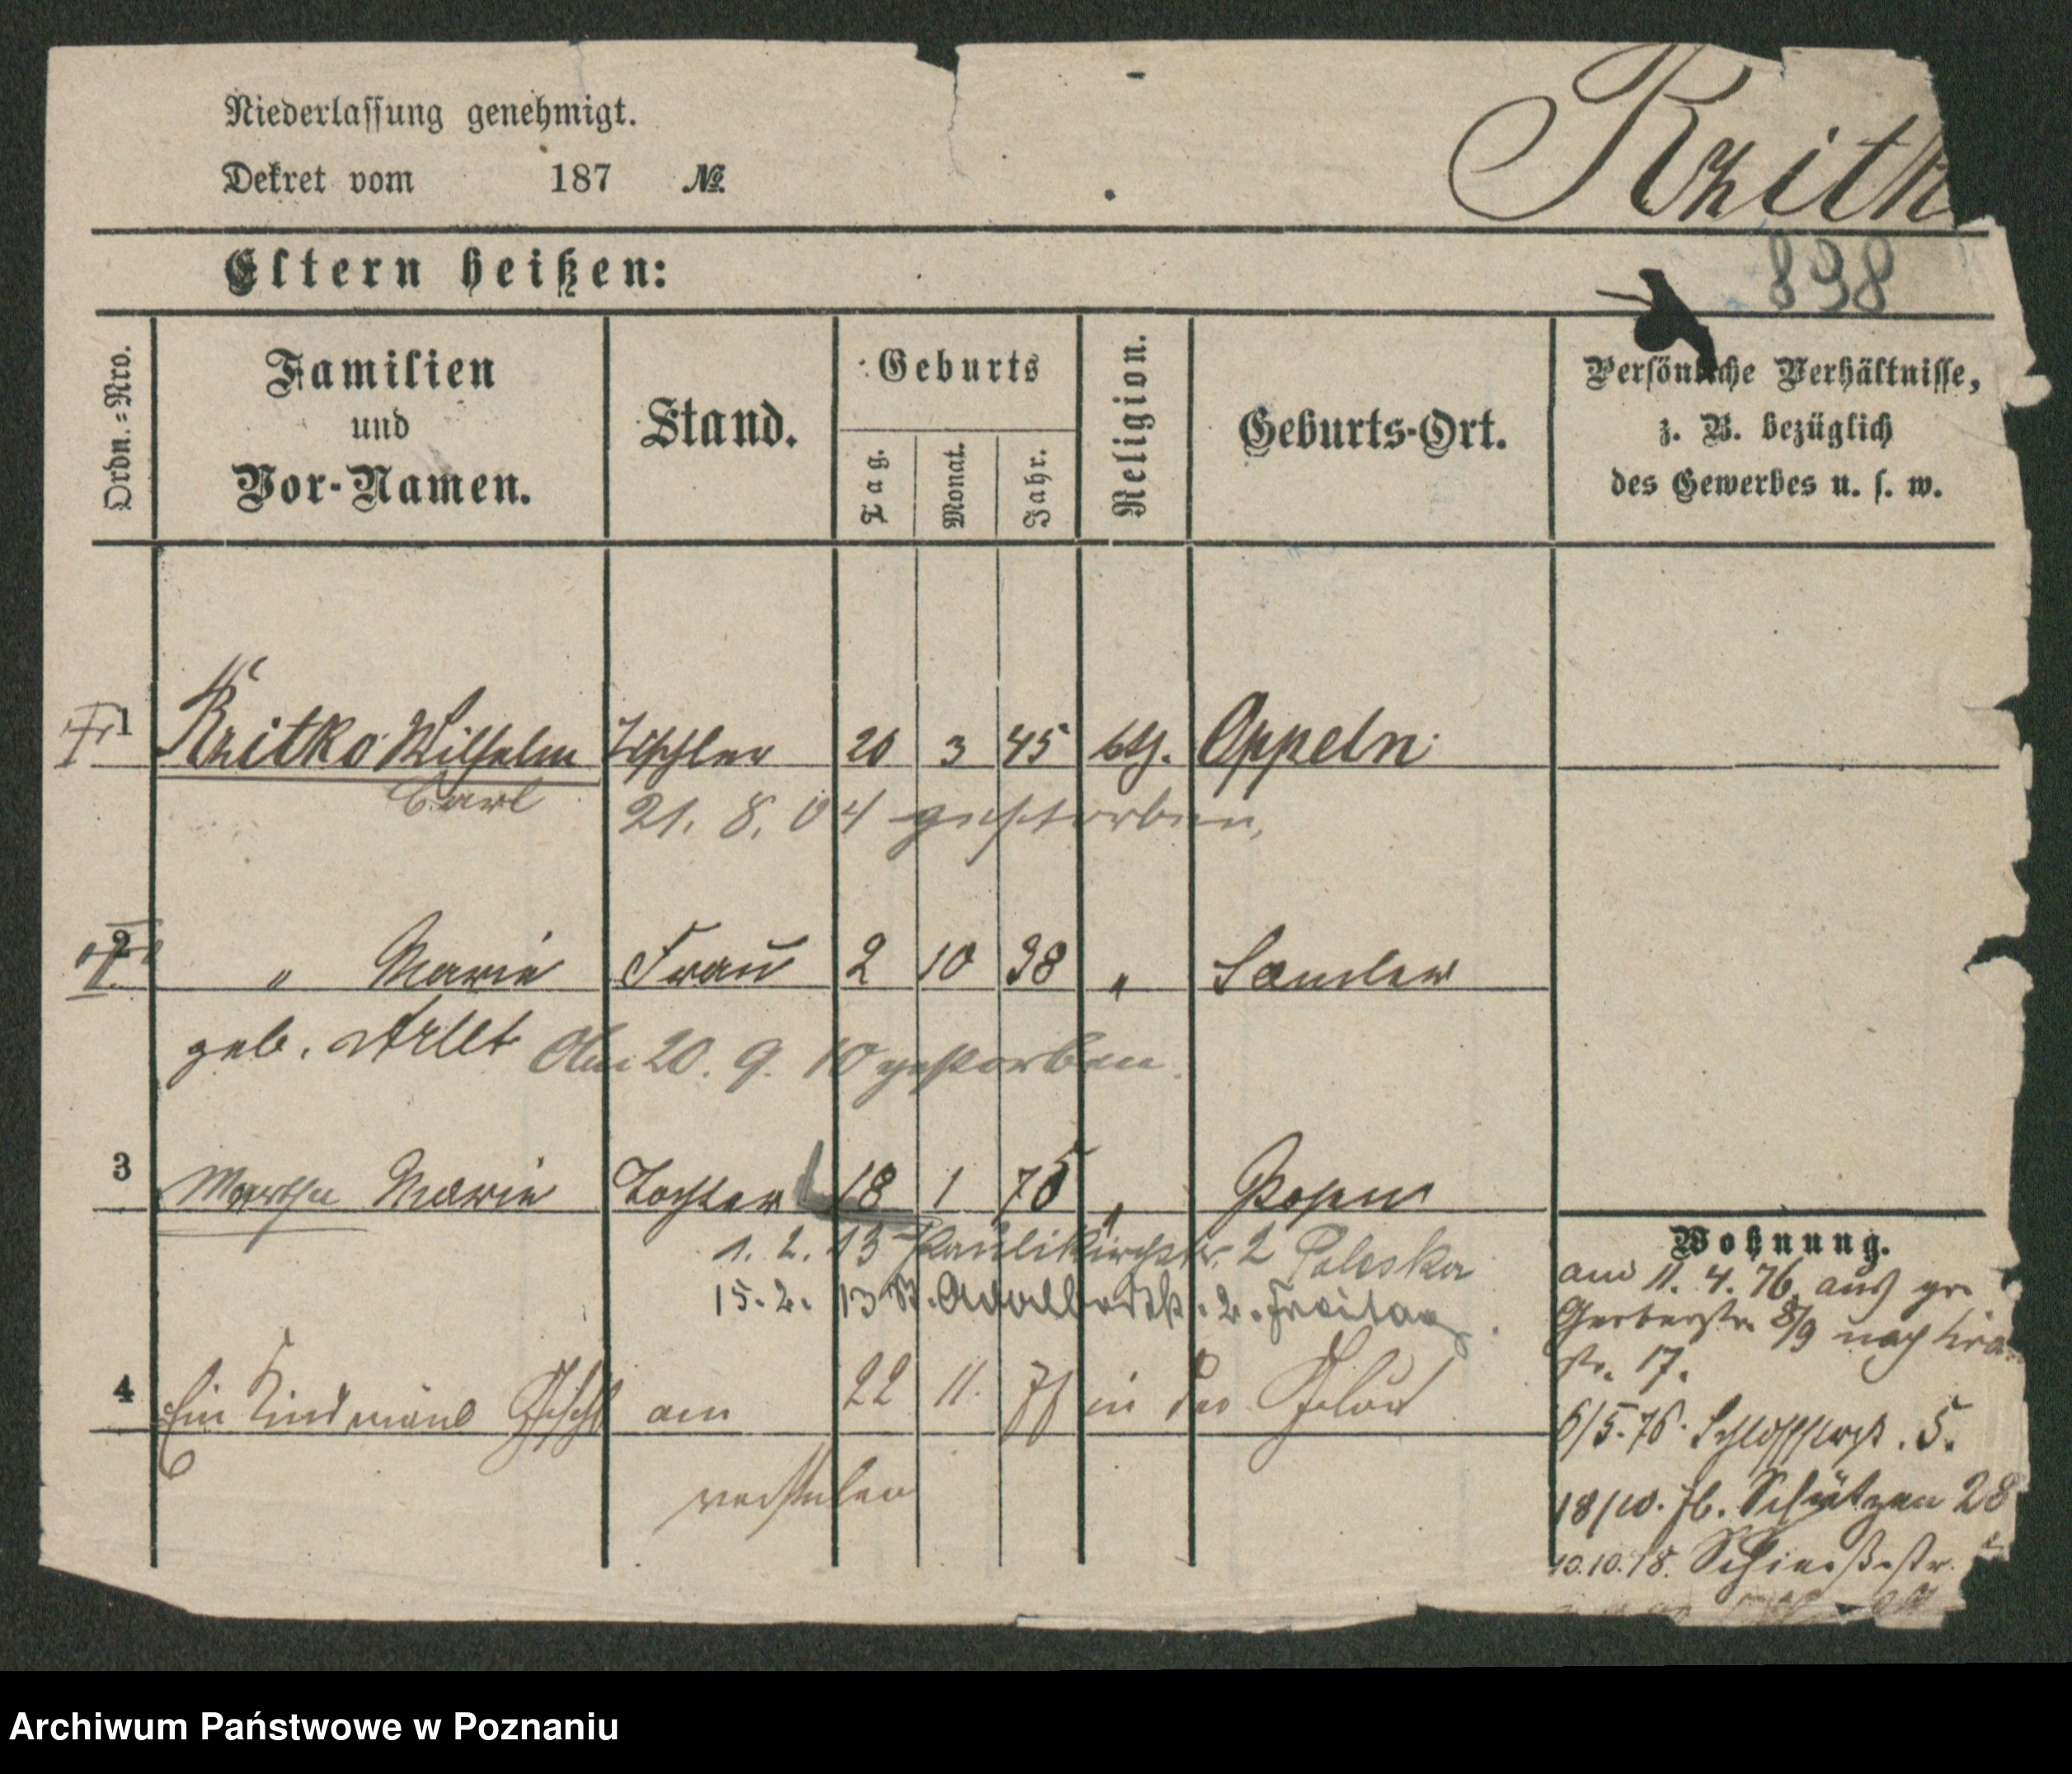 Niederlassung genehmigt.
Dekret vom 187 №
Rzitk
Eltern heißen:
898
Ordn.=Nro.
Familien
und
Vor-Namen.
Stand.
Geburts
Tag.
Monat.
Jahr.
Religion.
Geburts-Ort.
Persönliche Verhältnisse,
z. B. bezüglich
des Gewerbes u. s. w.
1 Rzitko Wilhelm Tischler 20 3 45 kth. Oppeln
Carl 21. 8. 04 gestorben,
2 " Marie Frau 2 10 38 "
geb. Arlt Am 20. 9. 10 gestorben.
3 Martha Marie Tochter 18 1 75 " Posen
1. 2. 13 Paulikirchstr. 2 Poleska
15. 2. 13 St. Adalbertstr. 2. Freitag
4 Ein Kind männl Geschl am 22 11. 77 in der Geburt
verstorben
Wohnung.
am 11. 4. 76 aus gr.
Gerberstr. 8/9 nach
str. 17.
6/5.76. Schlossstr. 5.
18/10. 76. Schützen 28
10.10.78. Schießstr.
Archiwum Państwowe w Poznaniu